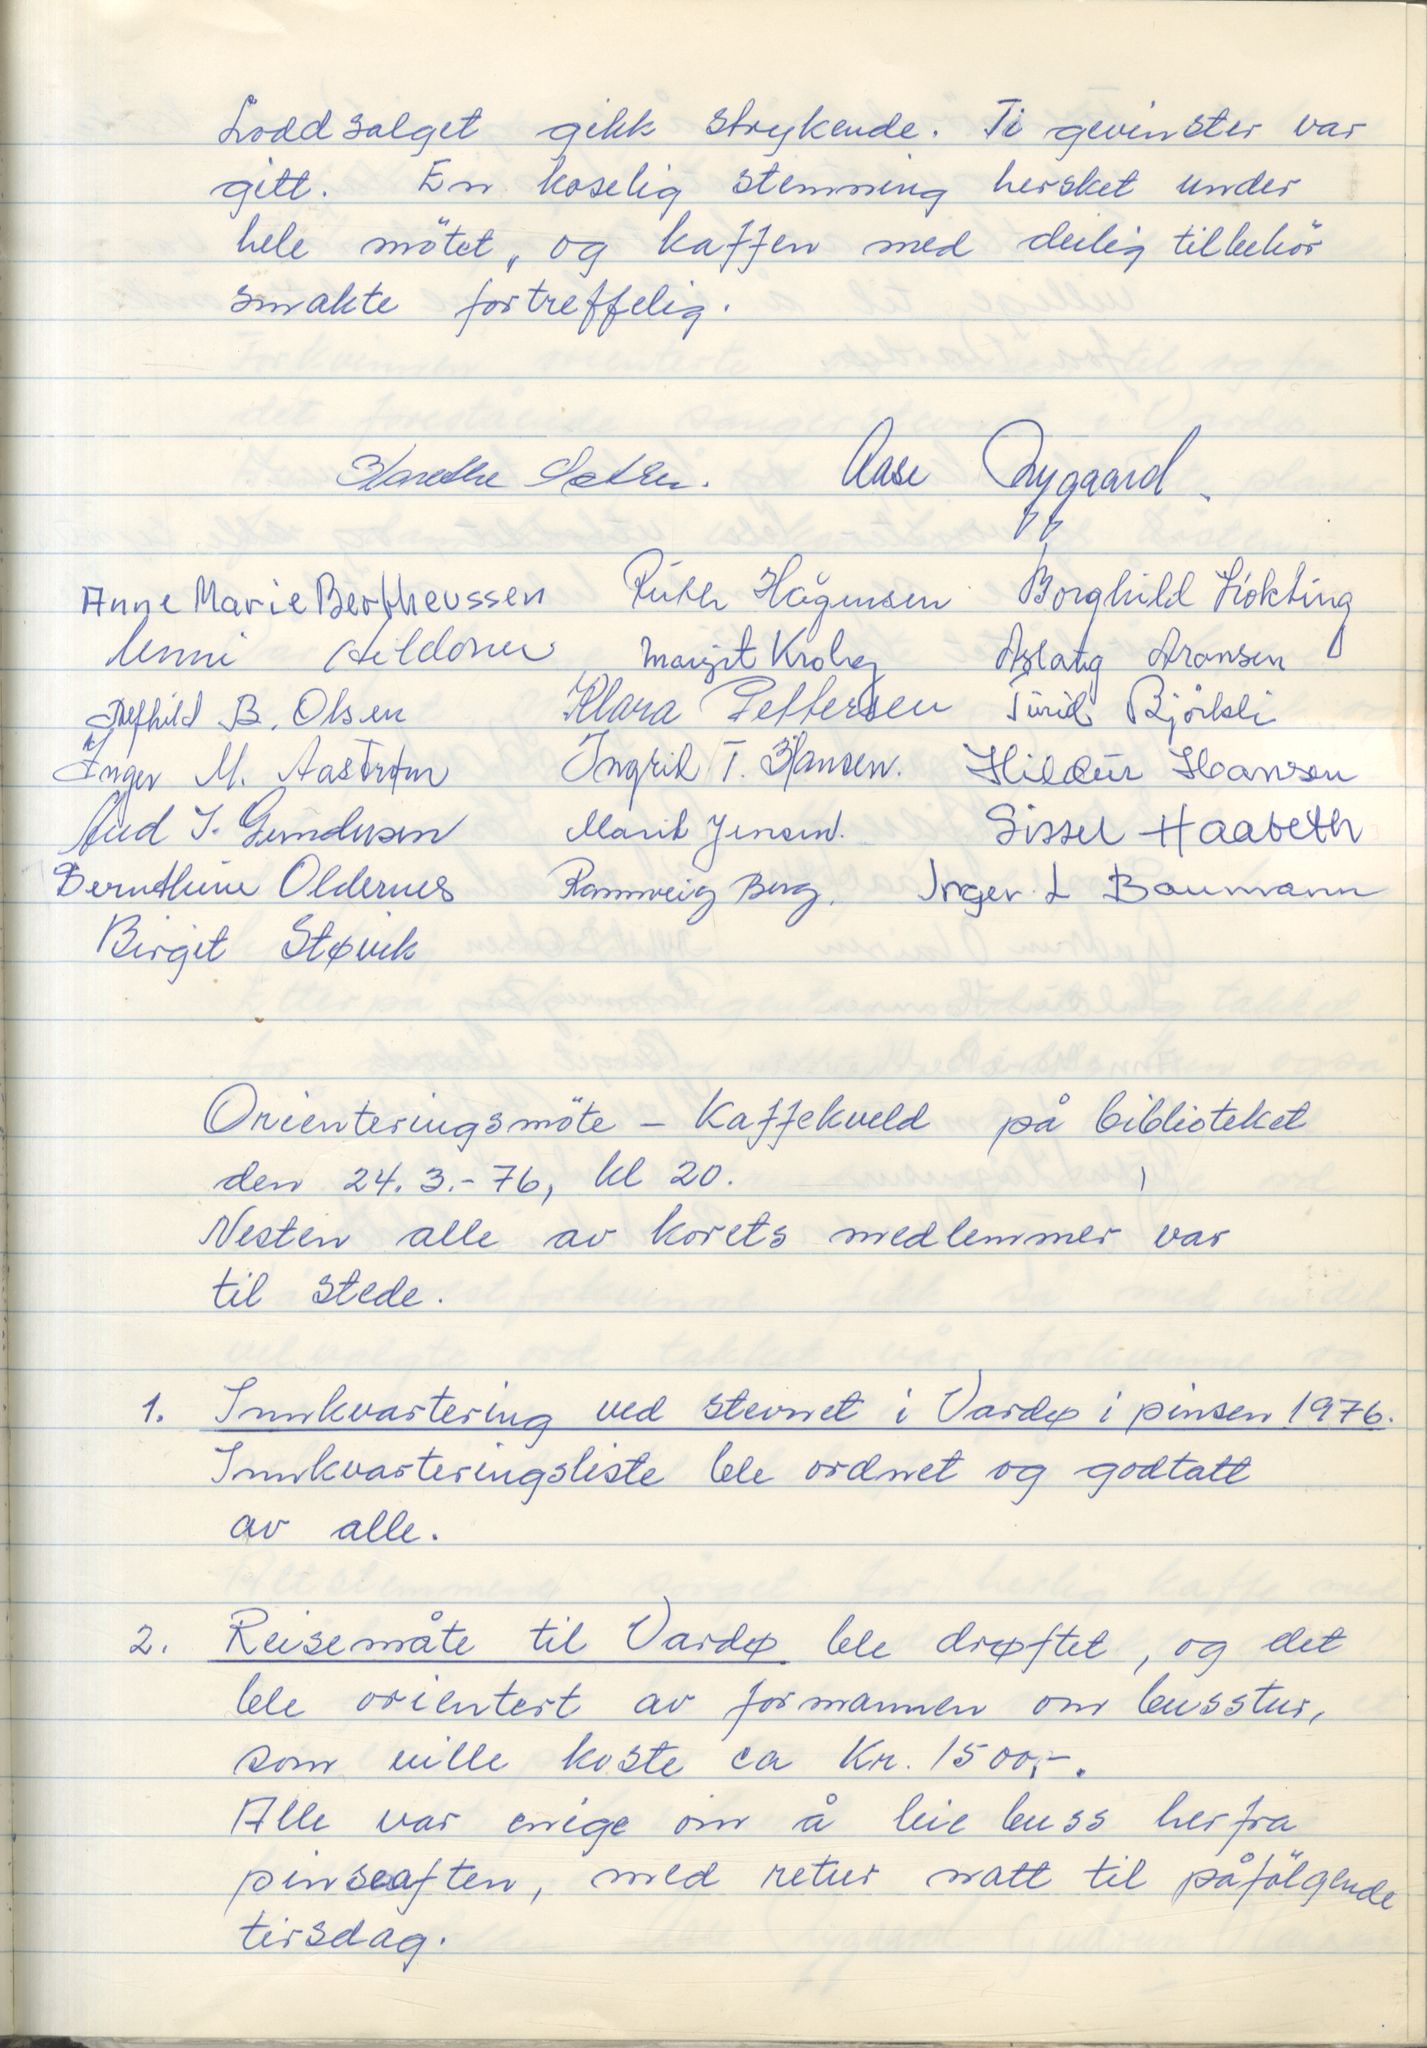 Loddsalget gikk strykende. Ti gevinster var
gitt. En koselig stemning hersket under
hele mötet, og kaffen med deilig tilbehör
smakte fortreffelig.
Aase Nygaard.
Anne Marie Bertheussen Ruth Hågensen Borghild Kokting
Margit Kroken Aslaug Aronsen
B. Olsen Klara Pettersen Turid Björkli
Inger M. Aaström Ingrid T. Hansen. Hildur Hansen
Aud J. Gundersen Marit Jensen. Sissel Haabeth
Bernthine Oldernes Rannveig Berg. Inger L Baumann
Birget Støvik
Orienteringsmöte – Kaffekveld på biblioteket
den 24.3.-76, kl 20.
Nesten alle av korets medlemmer var
til stede.
1. Innkvartering ved stevnet i Vardø i pinsen 1976.
Innkvarteringsliste ble ordnet og godtatt
av alle.
2. Reisemåte til Vardø ble drøftet, og det
ble orientert av formannen om busstur,
som ville koste ca Kr. 1500,-.
Alle var enige om å leie buss herfra
pinseaften, med retur natt til påfölgende
tirsdag.